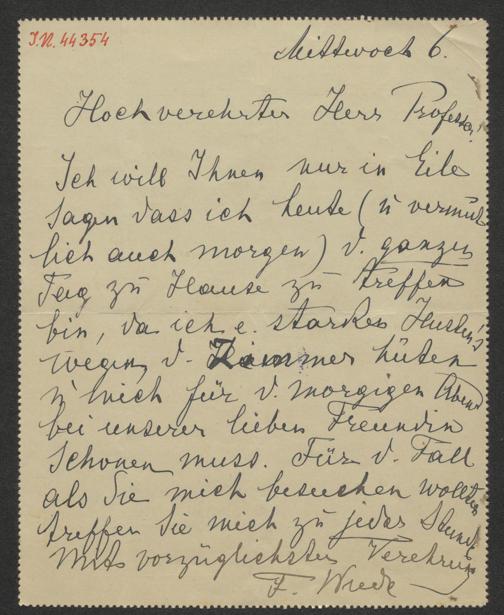 J.N. 44354
Mittwoch 6.
Hochverehrter Herr Professor,
Ich will Ihnen nur in Eile
sagen dass ich heute (u vermut
lich auch morgen) d. ganzen
Tag zu Hause zu treffen
bin, da ich e. starken Hustens
wegen d. Zimmer hüten
u mich für d. morgigen Abend
bei unserer lieben Freundin
schonen muss. Für d. Fall
als Sie mich besuchen wollten
treffen Sie mich zu jeder Stunde
Mit vorzüglichster Verehrung
F.